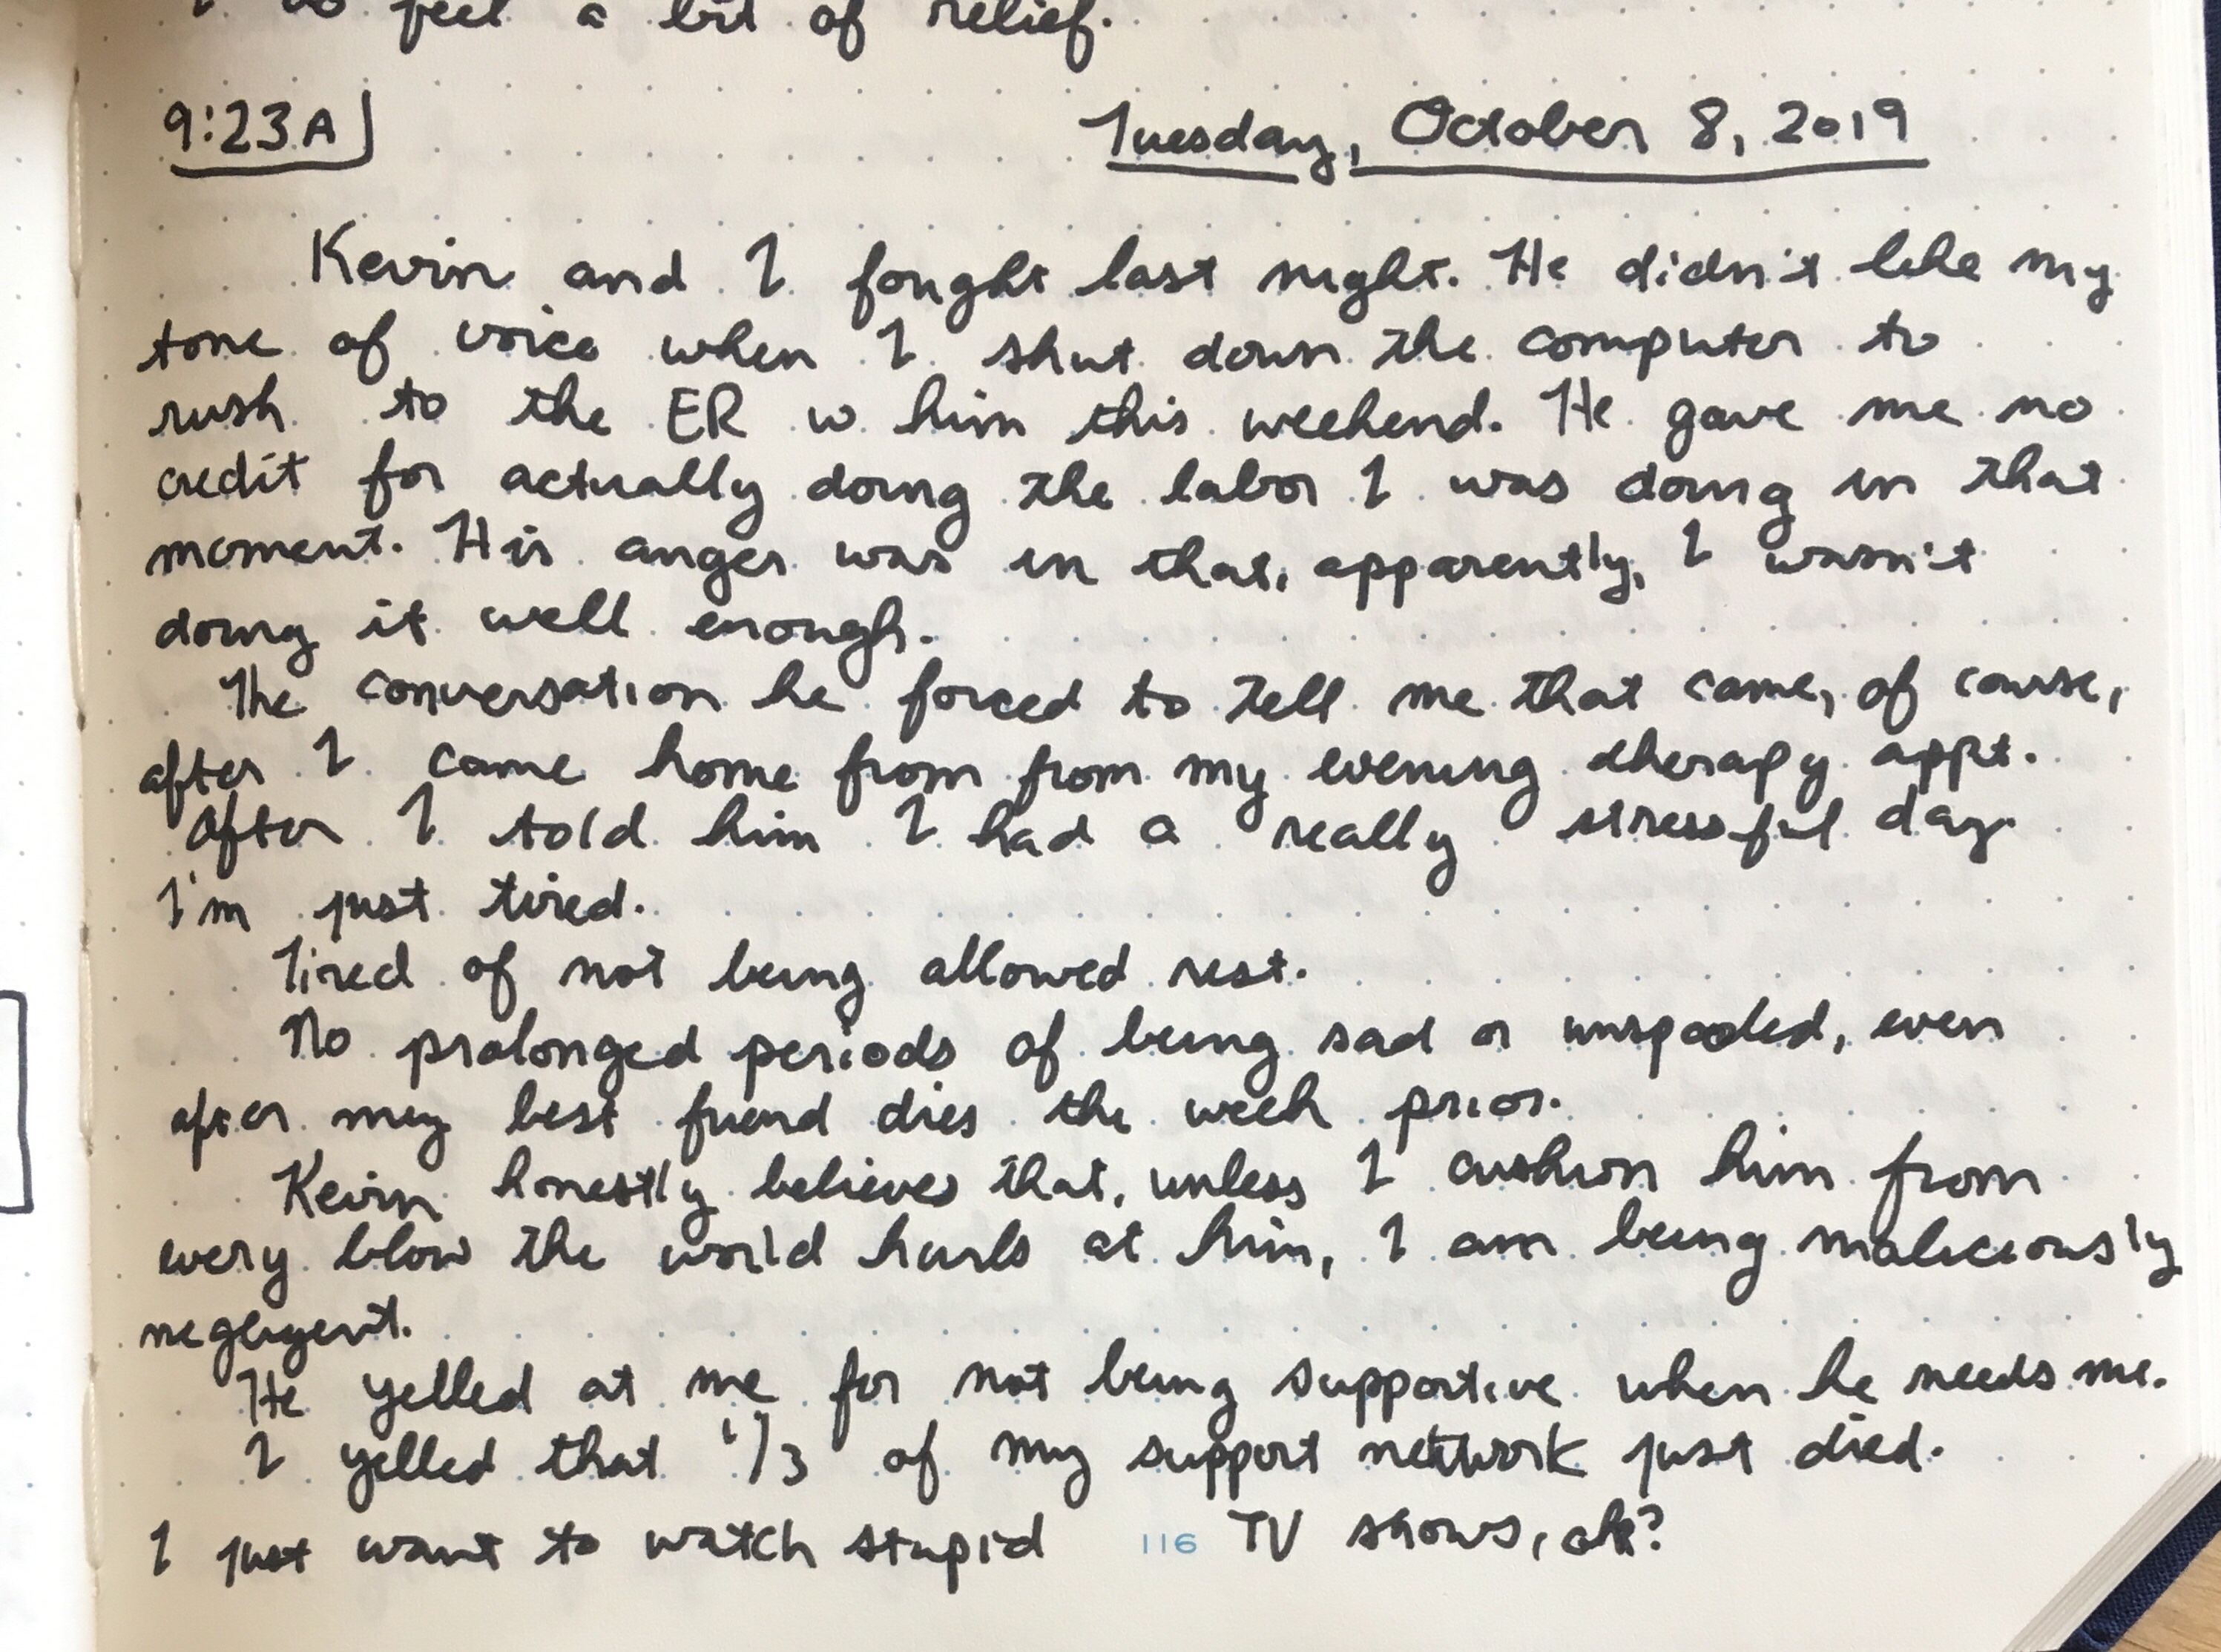 feel a bit of relief.
9:23A
Tuesday, October 8, 2019
Kevin and I fought last night. He didn't like my
tone of voice when I shut down the computer to
rush to the ER w him this weekend. He gave me no
credit for actually doing the labor I was doing in that
moment. His anger was in that, apparently, I wasn't
doing it well enough.
The conversation he forced to tell me that came, of course,
after I came home from from my evening therapy appt.
After I told him I had a really stressful day.
I'm just tired.
Tired of not being allowed rest.
No prolonged periods of being sad or unspooled, even
after my best friend dies the week prior.
Kevin honestly believes that, unless I cushion him from
every blow the world hurls at him, I am being maliciously
negligent.
He yelled at me for not being supportive when he needs me.
I yelled that 1/3 of my support network just died.
I just want to watch stupid TV shows, ok?
116